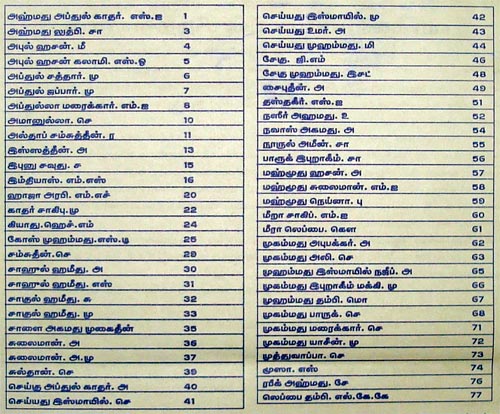 அஹ்மது அப்துல் காதர். எஸ்.ஐ 1
அஹ்மது லுத்பி. சா 3
அபுல் ஹசன். மீ 4
அபுல் ஹசன் கலாமி. எஸ்.ஓ 5
அப்துல் சத்தார். மு 6
அப்துல் ஜப்பார். மு 7
அப்துல்லா மரைக்கார். எம்.ஐ 8
அமானுல்லா. செ 10
அல்தாப் சம்சுத்தீன். ர 11
இஸ்ஸத்தீன். அ 13
இபுனு சவுது. ச 15
இம்தியாஸ். எம்.எஸ் 16
ஹாஜா அரபி. எம்.எச் 20
காதர் சாகிபு.மு 22
கியாது.ஹெச்.எம் 24
கோஸ் முஹம்மது.எஸ்.டி 25
சம்சுதீன்.செ 29
சாஹுல் ஹமீது. அ 30
சாஹுல் ஹமீது. எஸ் 31
சாகுல் ஹமீது. சு 32
சாகுல் ஹமீது. மு 33
சாளை அகமது முகைதீன் 35
சுலைமான். அ 36
சுலைமான். அ.மு 37
சுல்தான். செ 39
செய்கு அப்துல் காதர். அ 40
செய்யது இஸ்மாயில். செ 41
செய்யது இஸ்மாயில். மு 42
செய்யது உமர். அ 43
செய்யது முஹம்மது. மி 44
சேகு. ஜி.எம் 46
சேகு முஹம்மது. இசட் 48
சைபுதீன். அ 49
தஸ்தகீர். எஸ்.ஐ 51
நஸீர் அஹமது. உ 52
நவாஸ் அகமது. அ 54
நூருல் அமீன். சா 55
பாரூக் இபுறாகீம். சா 56
மஹ்மூது ஹசன். அ 57
மஹ்மூது சுலைமான். எம்.ஐ 58
மஹ்மூது நெய்னா. பு 59
மீறா சாகிப். எம்.ஐ 60
மீரா லெப்பை. கௌ 61
முகம்மது அபயக்கர். அ 62
முகம்மது அலி. செ 63
முஹம்மது இஸ்மாயில் நஜீப். அ 65
முகம்மது இபுறாகீம் மக்கி. மு 66
முஹம்மது தம்பி. மொ 67
முகம்மது பாருக். செ 68
முகம்மது மரைக்கார். செ 71
முகம்மது யாசீன். மு 72
முத்துவாப்பா. செ 73
மூஸா. எஸ் 74
ரபீக் அஹ்மது. சே 76
லெப்பை தம்பி. எஸ்.கே.கே 77